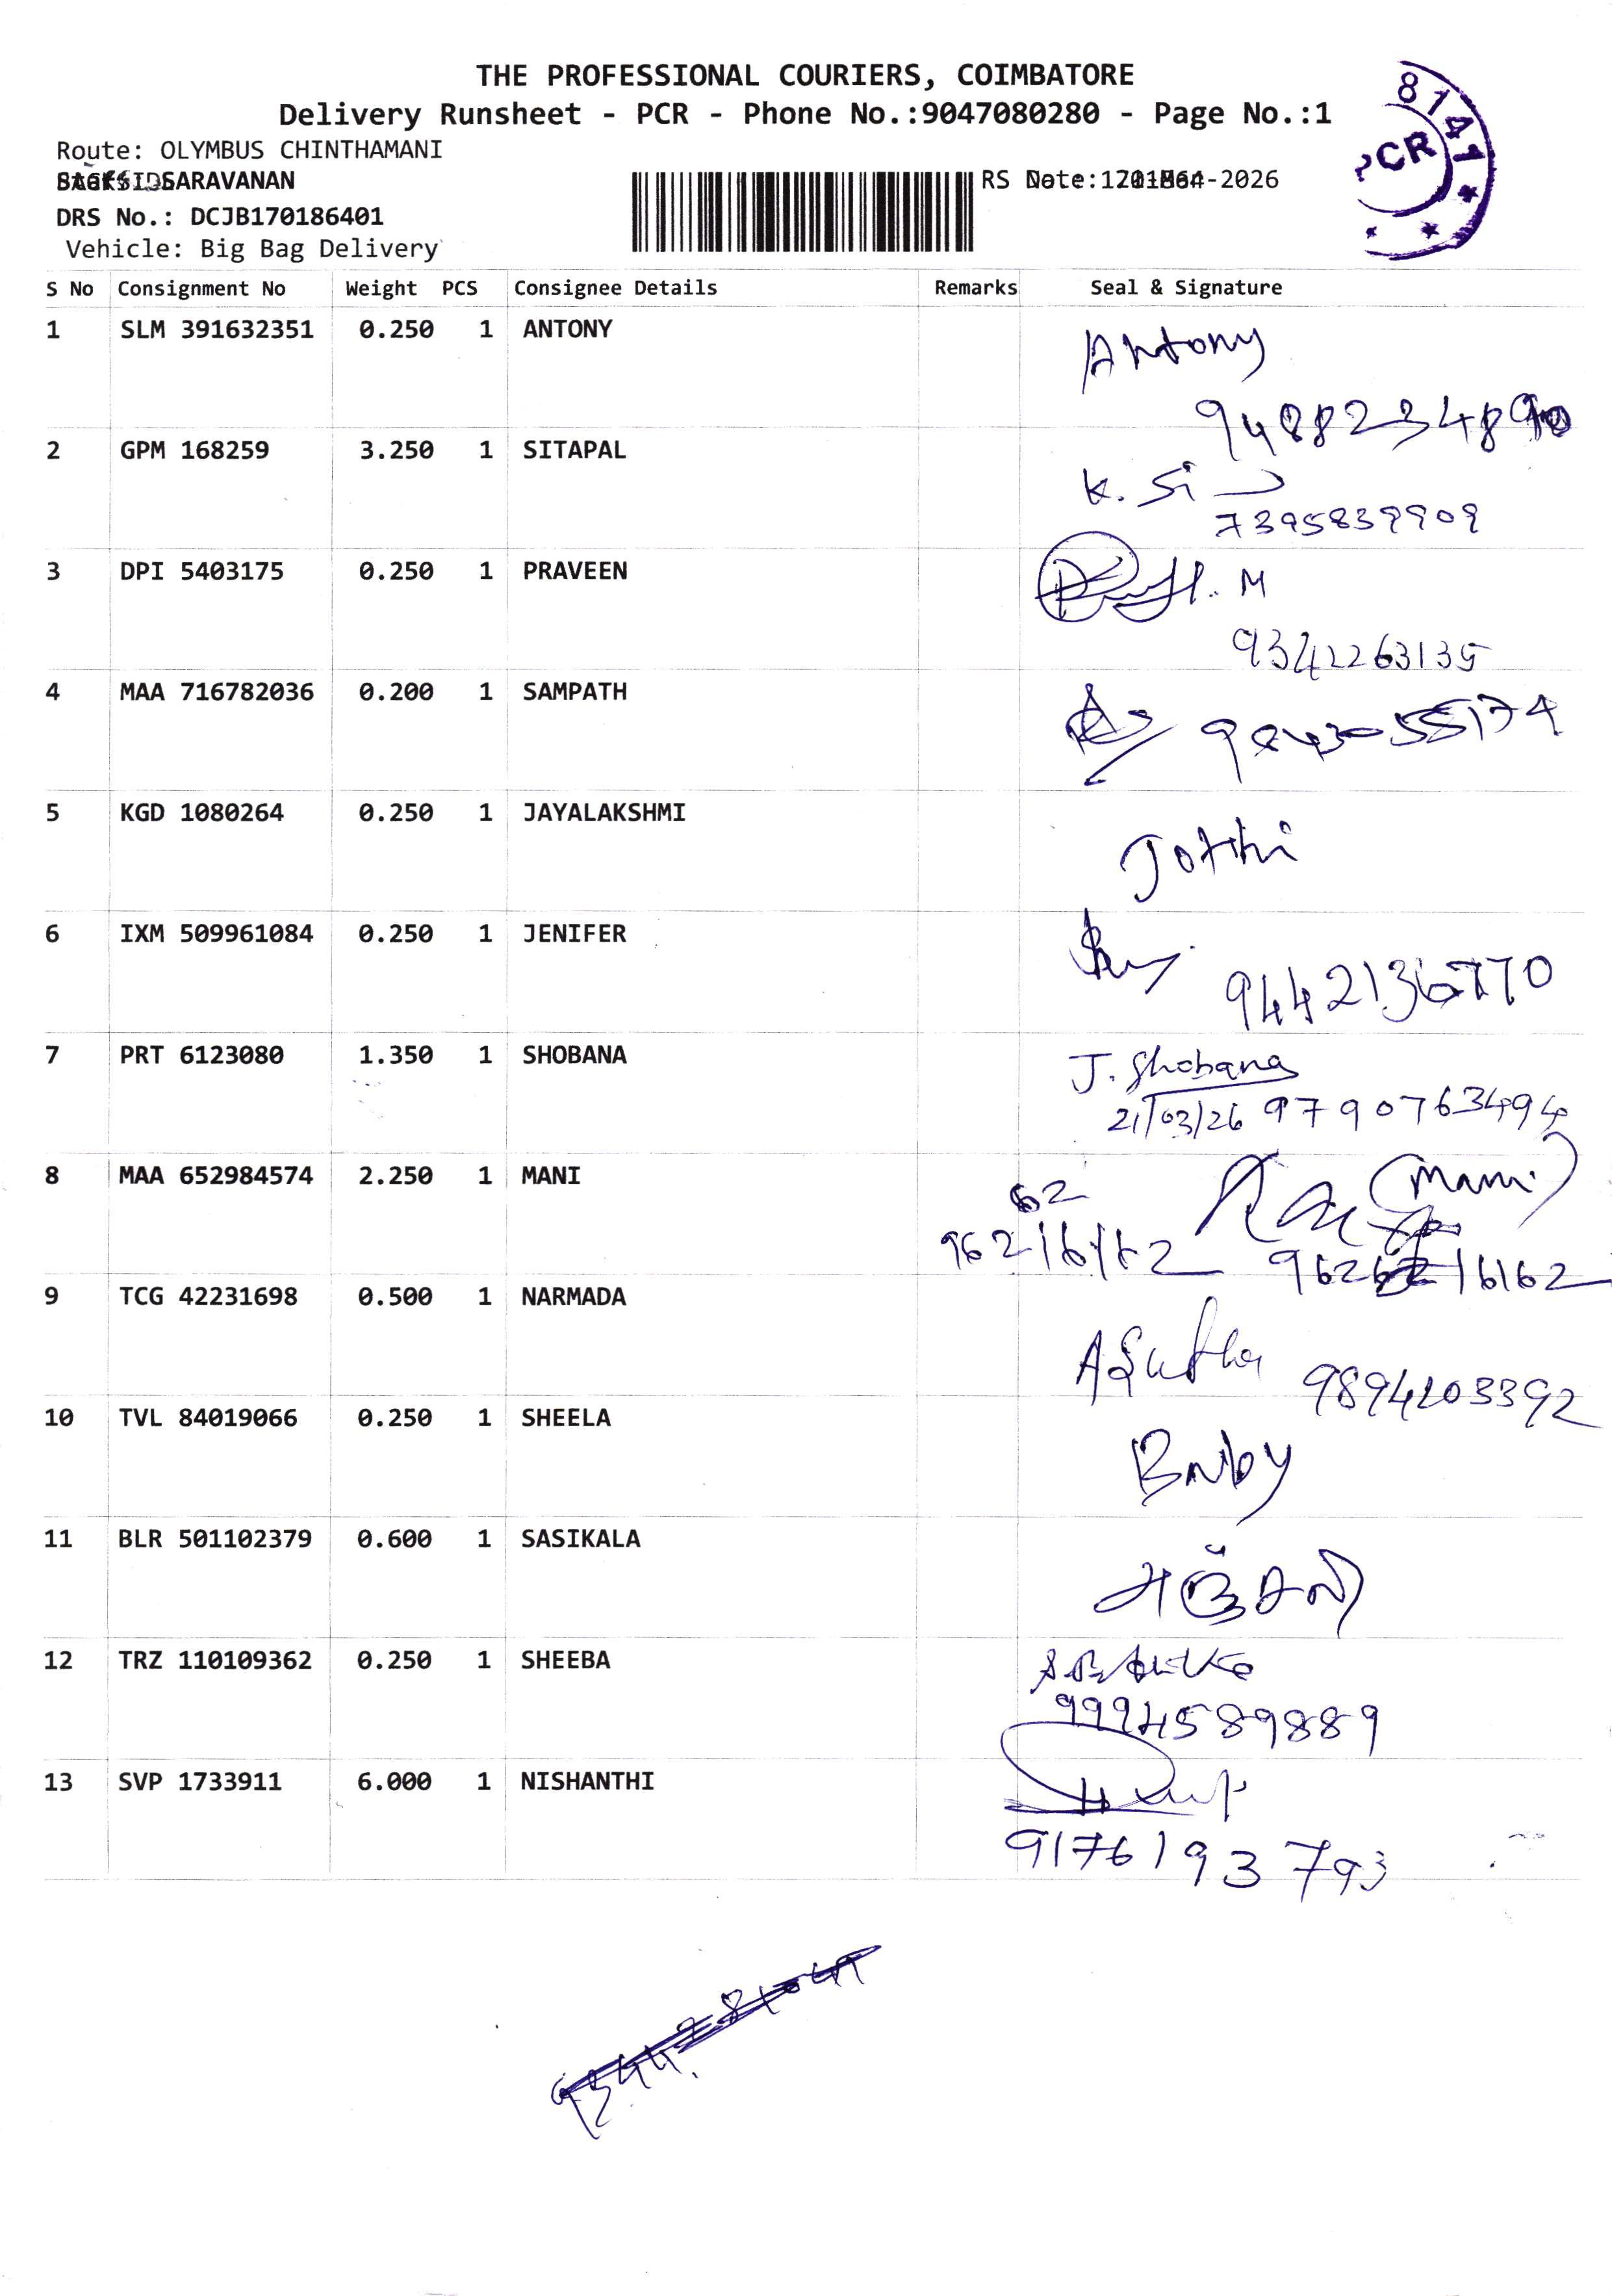 THE PROFESSIONAL COURIERS, COIMBATORE
Delivery Runsheet - PCR - Phone No.:9047080280 - Page No.:1
8141
PCR
Route: OLYMBUS CHINTHAMANI
SARAVANAN
RS
-2026
DRS No.: DCJB170186401
Vehicle: Big Bag Delivery
S No Consignment No Weight PCS Consignee Details Remarks Seal & Signature
1 SLM 391632351 0.250 1 ANTONY Antony
2 GPM 168259 3.250 1 SITAPAL K. Si
7395839909
3 DPI 5403175 0.250 1 PRAVEEN M
9342263135
4 MAA 716782036 0.200 1 SAMPATH
5 KGD 1080264 0.250 1 JAYALAKSHMI Jothi
6 IXM 509961084 0.250 1 JENIFER
9442136770
7 PRT 6123080 1.350 1 SHOBANA J. Shobana
21/03/26 9790763494
8 MAA 652984574 2.250 1 MANI (Mani)
62
9 TCG 42231698 0.500 1 NARMADA A Sutha
9894203392
10 TVL 84019066 0.250 1 SHEELA Baby
11 BLR 501102379 0.600 1 SASIKALA அஞ்சலி
12 TRZ 110109362 0.250 1 SHEEBA
9994589889
13 SVP 1733911 6.000 1 NISHANTHI
9176193793